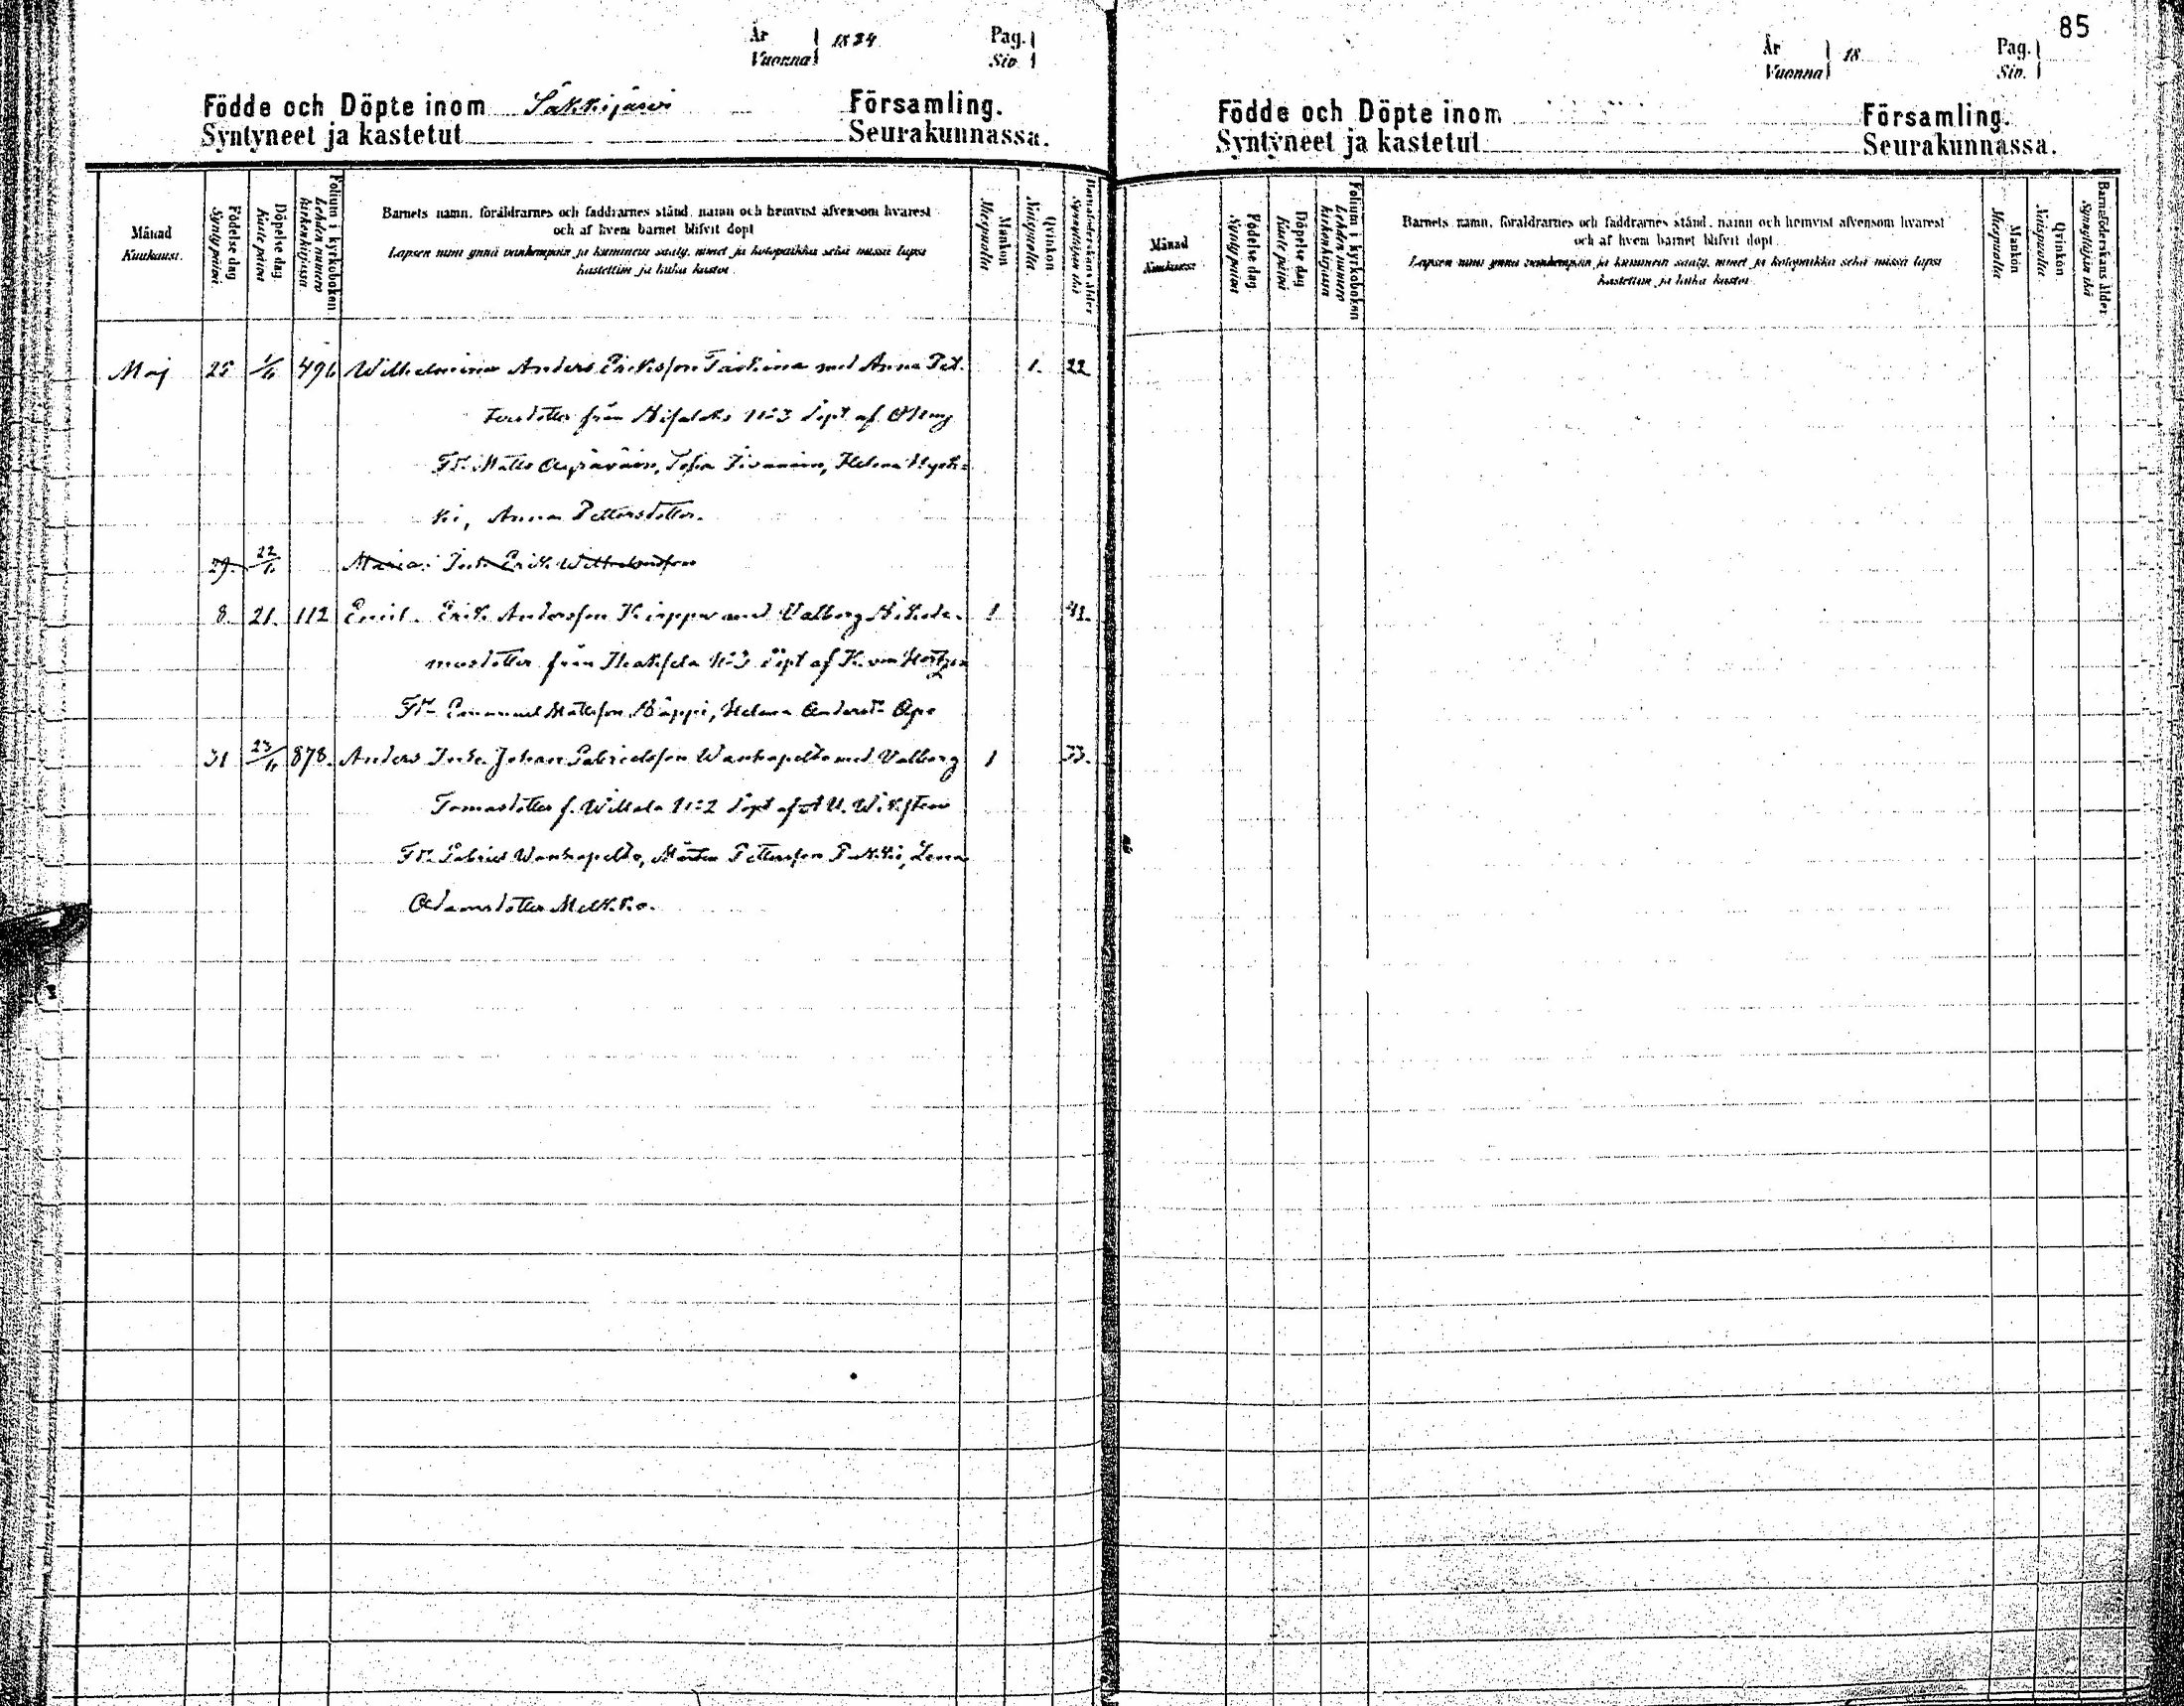 År
Vuonna
1884
Pag.
Siv.
Födde och Döpte inom Säkkijärvi Församling.
Syntyneet ja kastetut Seurakunnassa.
Månad
Kuukausi.
Födelse dag
Syntypäivä
Döpelse dag.
Kastepäivä
Folium i kyrkoboken
Lehden numero
kirkonkirjassa
Barnets namn, föräldrarnes och faddrarnes stånd, namn och hemvist äfvensom hvarest
och af hvem barnet blifvit döpt
Lapsen nimi ynnä vanhempain ja kummein sääty, nimet ja kotopaikka sekä missä lapsi
kastettiin ja kuka kastoi.
Mankön
Miespuolia
Qvinkön
Naispuolia
Barnaföderskans ålder
Synnyttäjän ikä
Maj 25 1/6 496 Wilhelmina Anders Eriksson med Anna Pet- 1. 22
tersdotter från No 3 döpt af
Fr. Matts Sofia Helena Hyrk-
ki, Anna Pettersdotter.
29. 22/6 Maria: Inh. Erik Wilhelmsson
8. 21. 112 Emil. Erik Andersson Kiappa med Valborg Nikode- 1 41.
musdotter från No 3 döpt af K. von Hertzen
Fr. Emanuel Mattsson Helena Andersdr
31 23/6 878. Anders Inh. Johan Gabrielsson Wanhapelto med Valborg 1 33.
Tomasdotter f. Willala No 2 döpt af A U. Wiksten
Fr. Gabriel Wanhapelto, Mårten Pettersson Pukki, Lena
Adamsdotter Melkko.
85
År
Vuonna
18
Pag.
Siv.
Födde och Döpte inom Församling.
Syntyneet ja kastetut Seurakunnassa.
Månad
Kuukausi
Födelse dag.
Syntypäivä
Döpelse dag
Kastepäivä
Folium i kyrkoboken
Lehden numero
kirkonkirjassa
Barnets namn, föräldrarnes och faddrarnes stånd, namn och hemvist äfvensom hvarest
och af hvem barnet blifvit döpt.
Lapsen nimi ynnä vanhempain ja kummein sääty, nimet ja kotopaikka sekä missä lapsi
kastettiin ja kuka kastoi
Mankön
Miespuolia
Qvinkön
Naispuolia
Barnaföderskans ålder
Synnyttäjän ikä